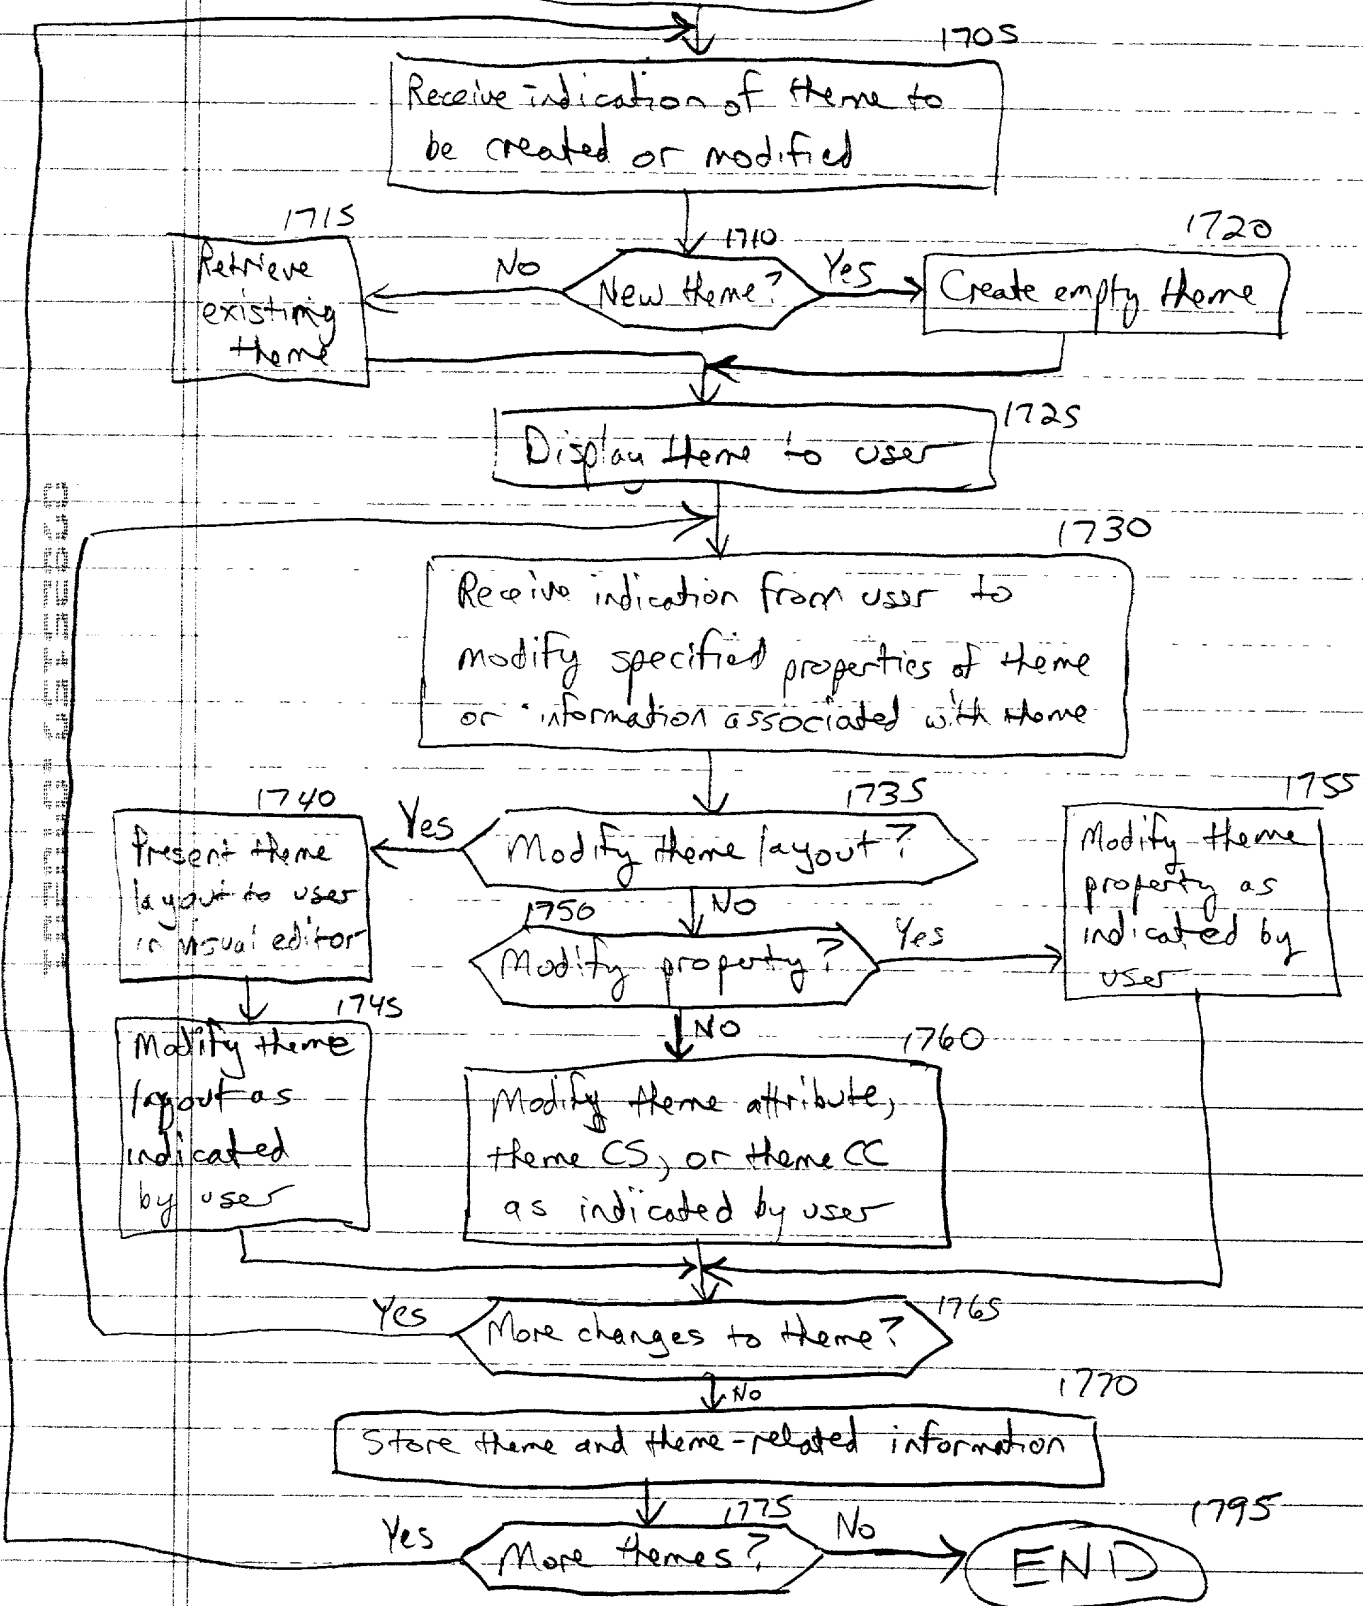 1705
Receive indication of theme to
be created or modified
1715
1710
1720
Retrieve
existing
theme
No
New theme?
Yes
Create empty theme
1725
Display theme to user
1730
Receive indication from user to
modify specified properties of theme
or information associated with theme
1740
Yes
1735
1755
Present theme
layout to user
in visual editor
Modify theme layout?
Modify theme
property as
indicated by
user
No
1750
Modify property?
Yes
1745
Modify theme
layout as
indicated
by user
No
1760
Modify theme attribute,
theme CS, or theme CC
as indicated by user
Yes
More changes to theme?
1765
No
1770
Store theme and theme-related information
1775
Yes
More themes?
No
1795
END